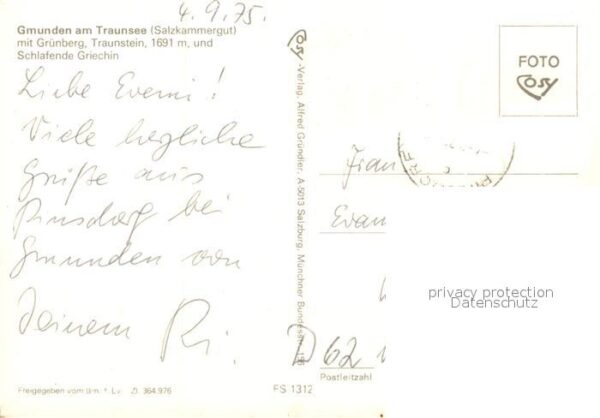 4.9.75.
Gmunden am Traunsee (Salzkammergut)
mit Grünberg, Traunstein, 1691 m, und
Schlafende Griechin
Liebe Evemi!
Viele herzliche
Grüße aus
Pinsdorf bei
Gmunden von
Deinem Ri.
Freigegeben vom Zl. 364.976
Cosy-Verlag, Alfred Gründler, A-5013 Salzburg, Münchner Bundesstr.
FS 1312
FOTO
Cosy
Frau
Evan
D 62
Postleitzahl
privacy protection
Datenschutz